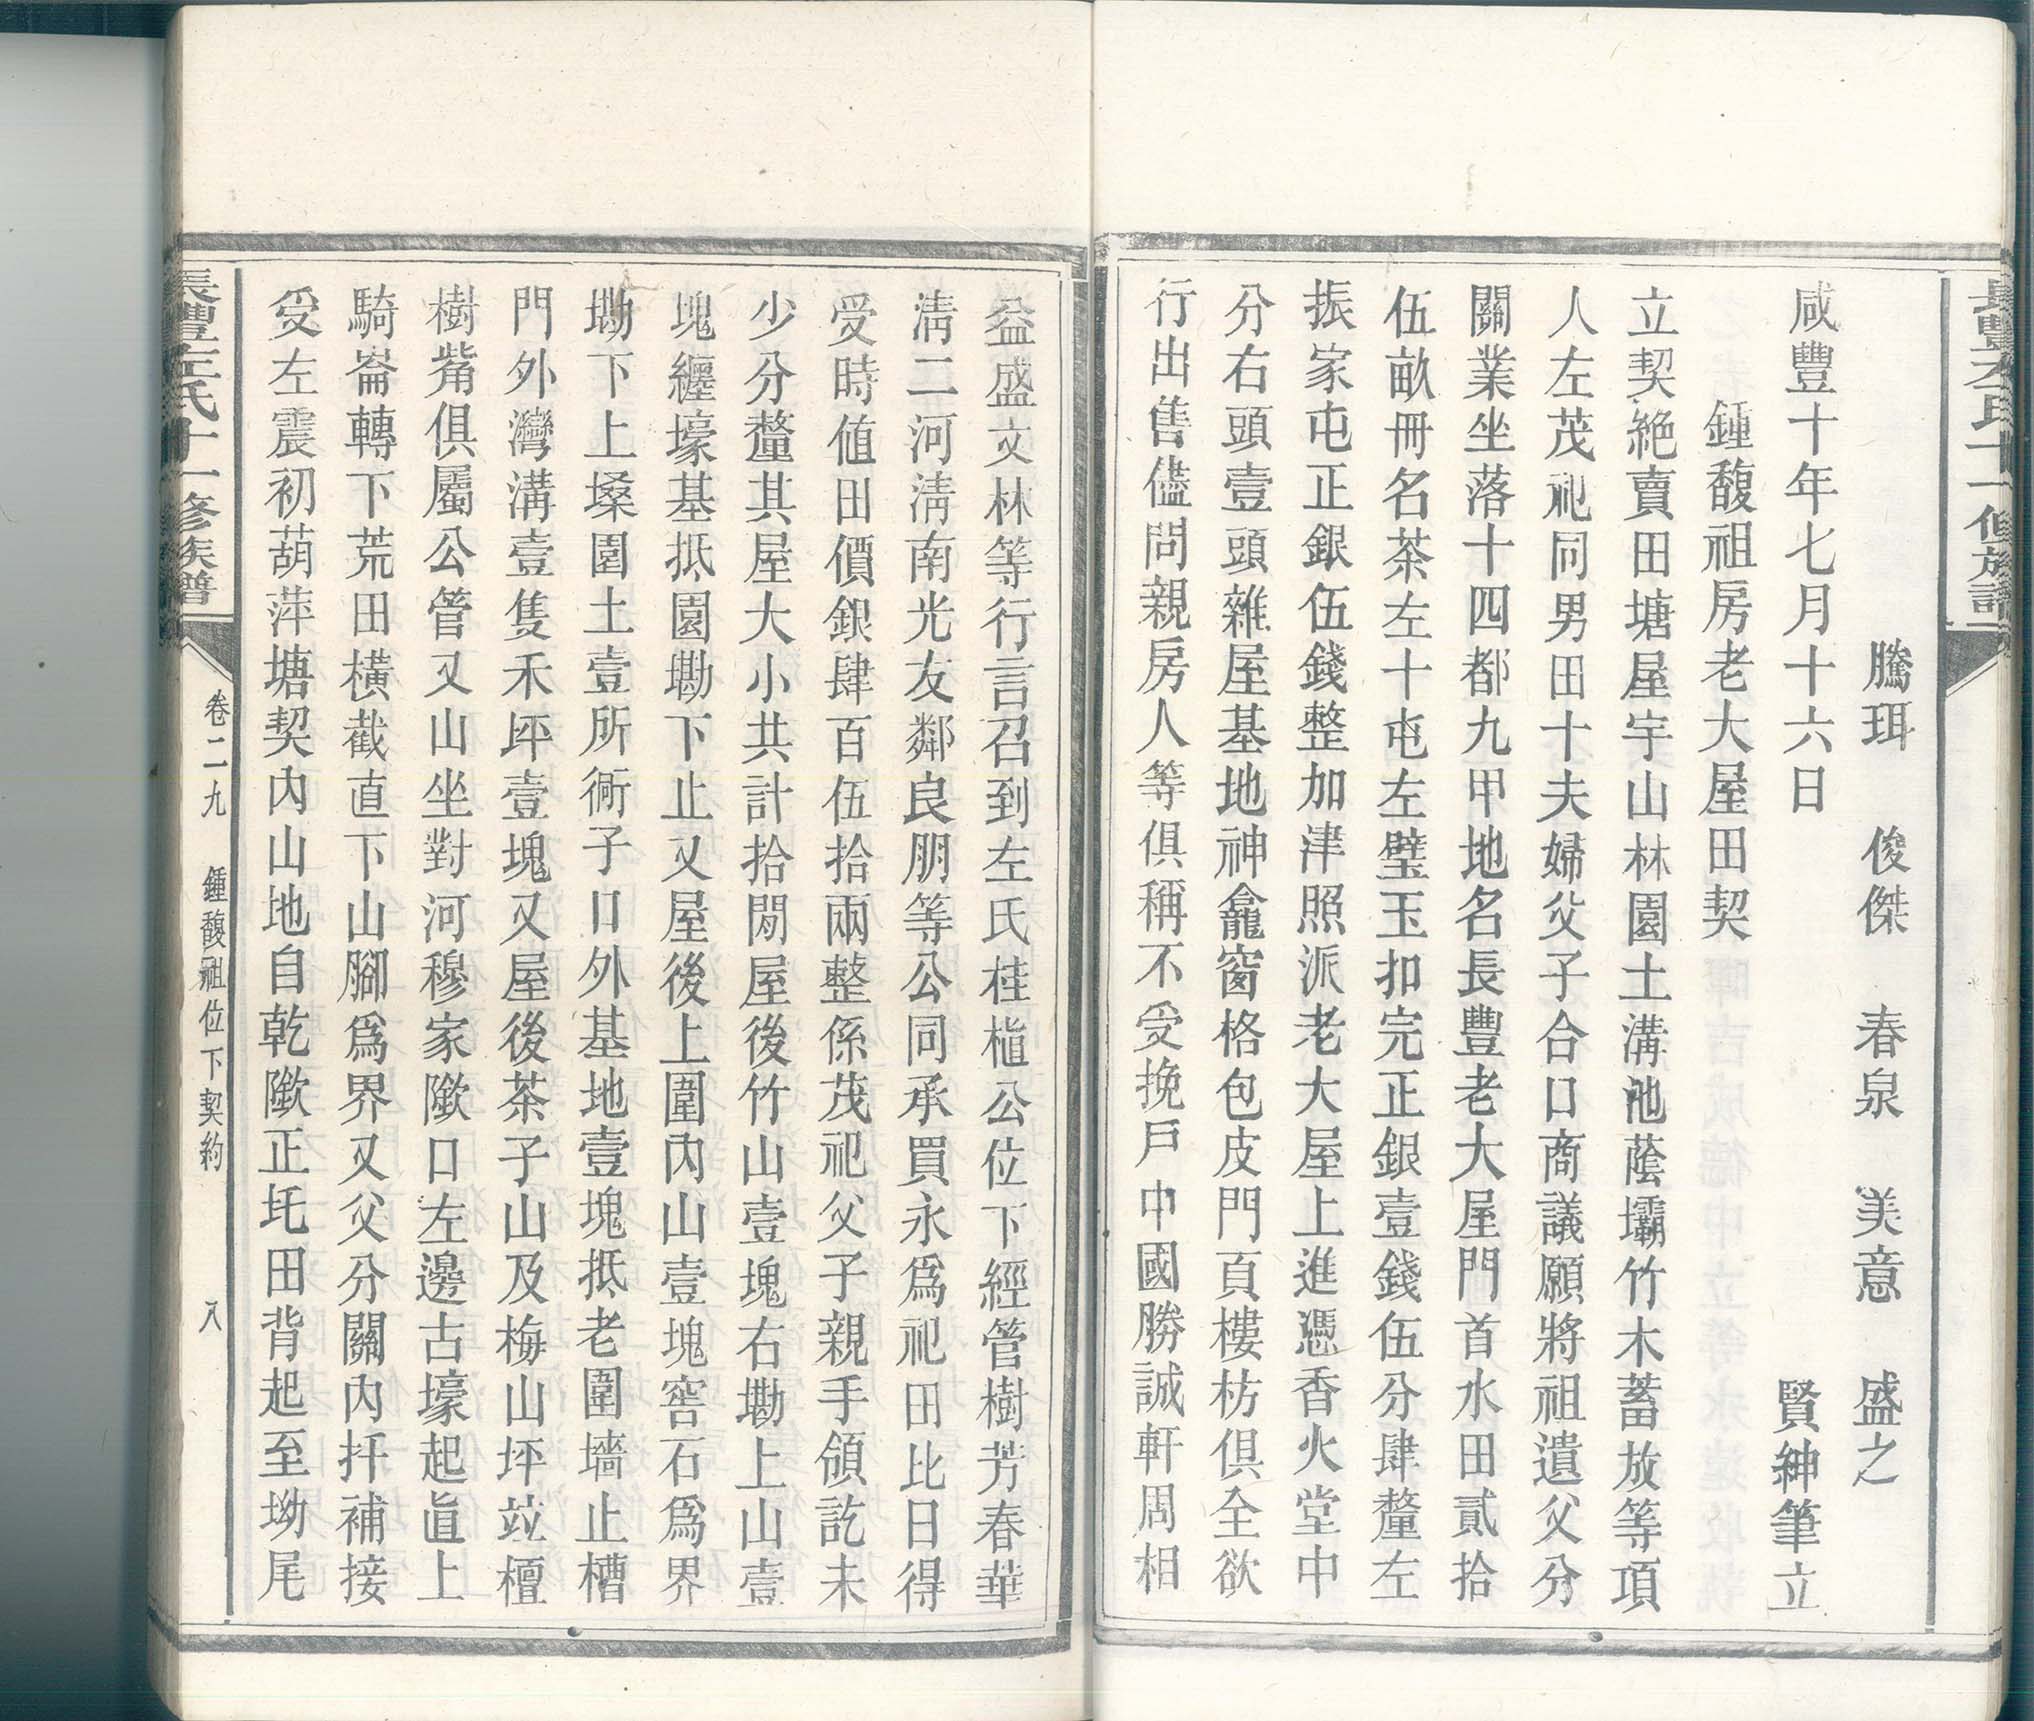 長豐左氏十一修族譜
騰珥　俊傑　春泉　美意　盛之
咸豐十年七月十六日　賢紳筆立
鍾馥祖房老大屋田契
立契絶賣田塘屋宇山林園土溝池蔭壩竹木蓄放等項
人左茂祀同男田十夫婦父子合口商議願將祖遺父分
關業坐落十四都九甲地名長豐老大屋門首水田貳拾
伍畝冊名茶左十屯左璧玉扣完正銀壹錢伍分肆釐左
振家屯正銀伍錢整加津照派老大屋上進憑香火堂中
分右頭壹頭雜屋基地神龕窗格包皮門頁樓枋俱全欲
行出售儘問親房人等俱稱不受挽戶中國勝誠軒周相
益盛文林等行言召到左氏桂樝公位下經管樹芳春華
淸二河淸南光友鄰良朋等公同承買永爲祀田比日得
受時値田價銀肆百伍拾兩整係茂祀父子親手領訖未
少分釐其屋大小共計拾閒屋後竹山壹塊右墈上山壹
塊纏壕基抵園墈下止又屋後上圍內山壹塊窖石爲界
墈下上塝園土壹所衕子口外基地壹塊抵老圍墻止槽
門外灣溝壹隻禾坪壹塊又屋後茶子山及梅山坪竝檀
樹觜俱屬公管又山坐對河穆家隞口左邊古壕起直上
騎崙轉下荒田橫截直下山腳爲界又父分關內扦補接
受左震初葫萍塘契內山地自乾隞正圫田背起至坳尾
長豐左氏十一修族譜
卷二九　鍾馥祖位下契約　八